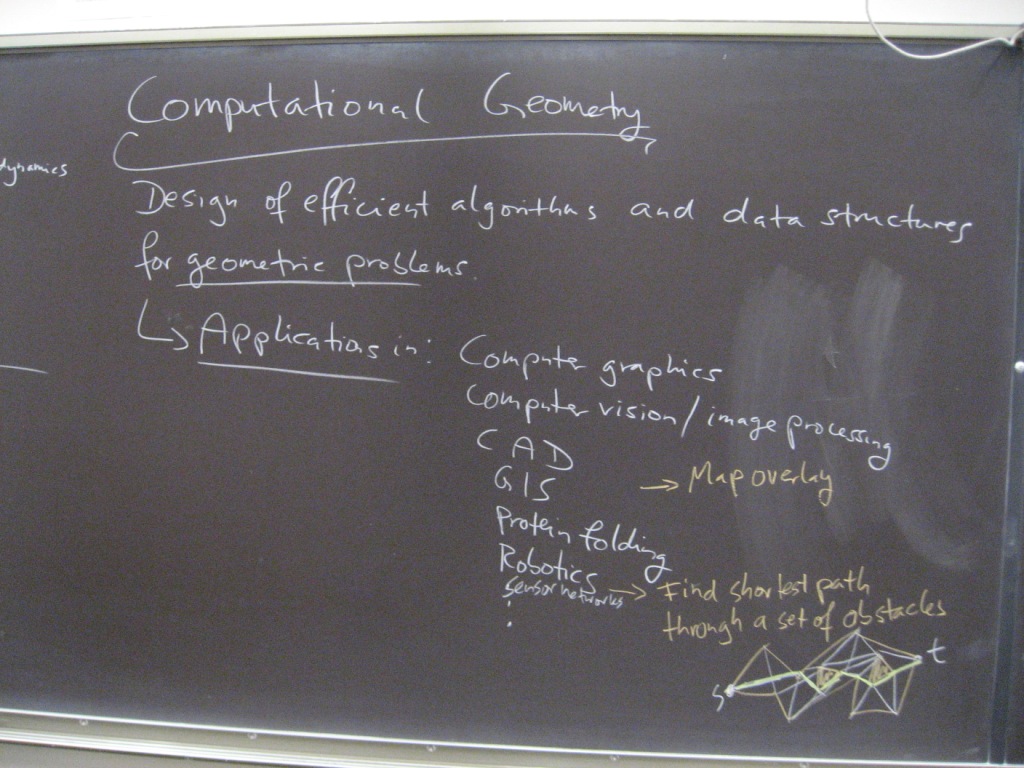 Computational Geometry
dynamics
Design of efficient algorithms and data structures
for geometric problems.
↳ Applications in: Computer graphics
Computer vision / image processing
CAD
GIS → Map overlay
Protein folding
Robotics → Find shortest path
sensor networks through a set of obstacles
s t